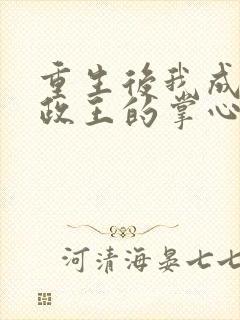 重生後我成
政王的掌心
河清海晏七七